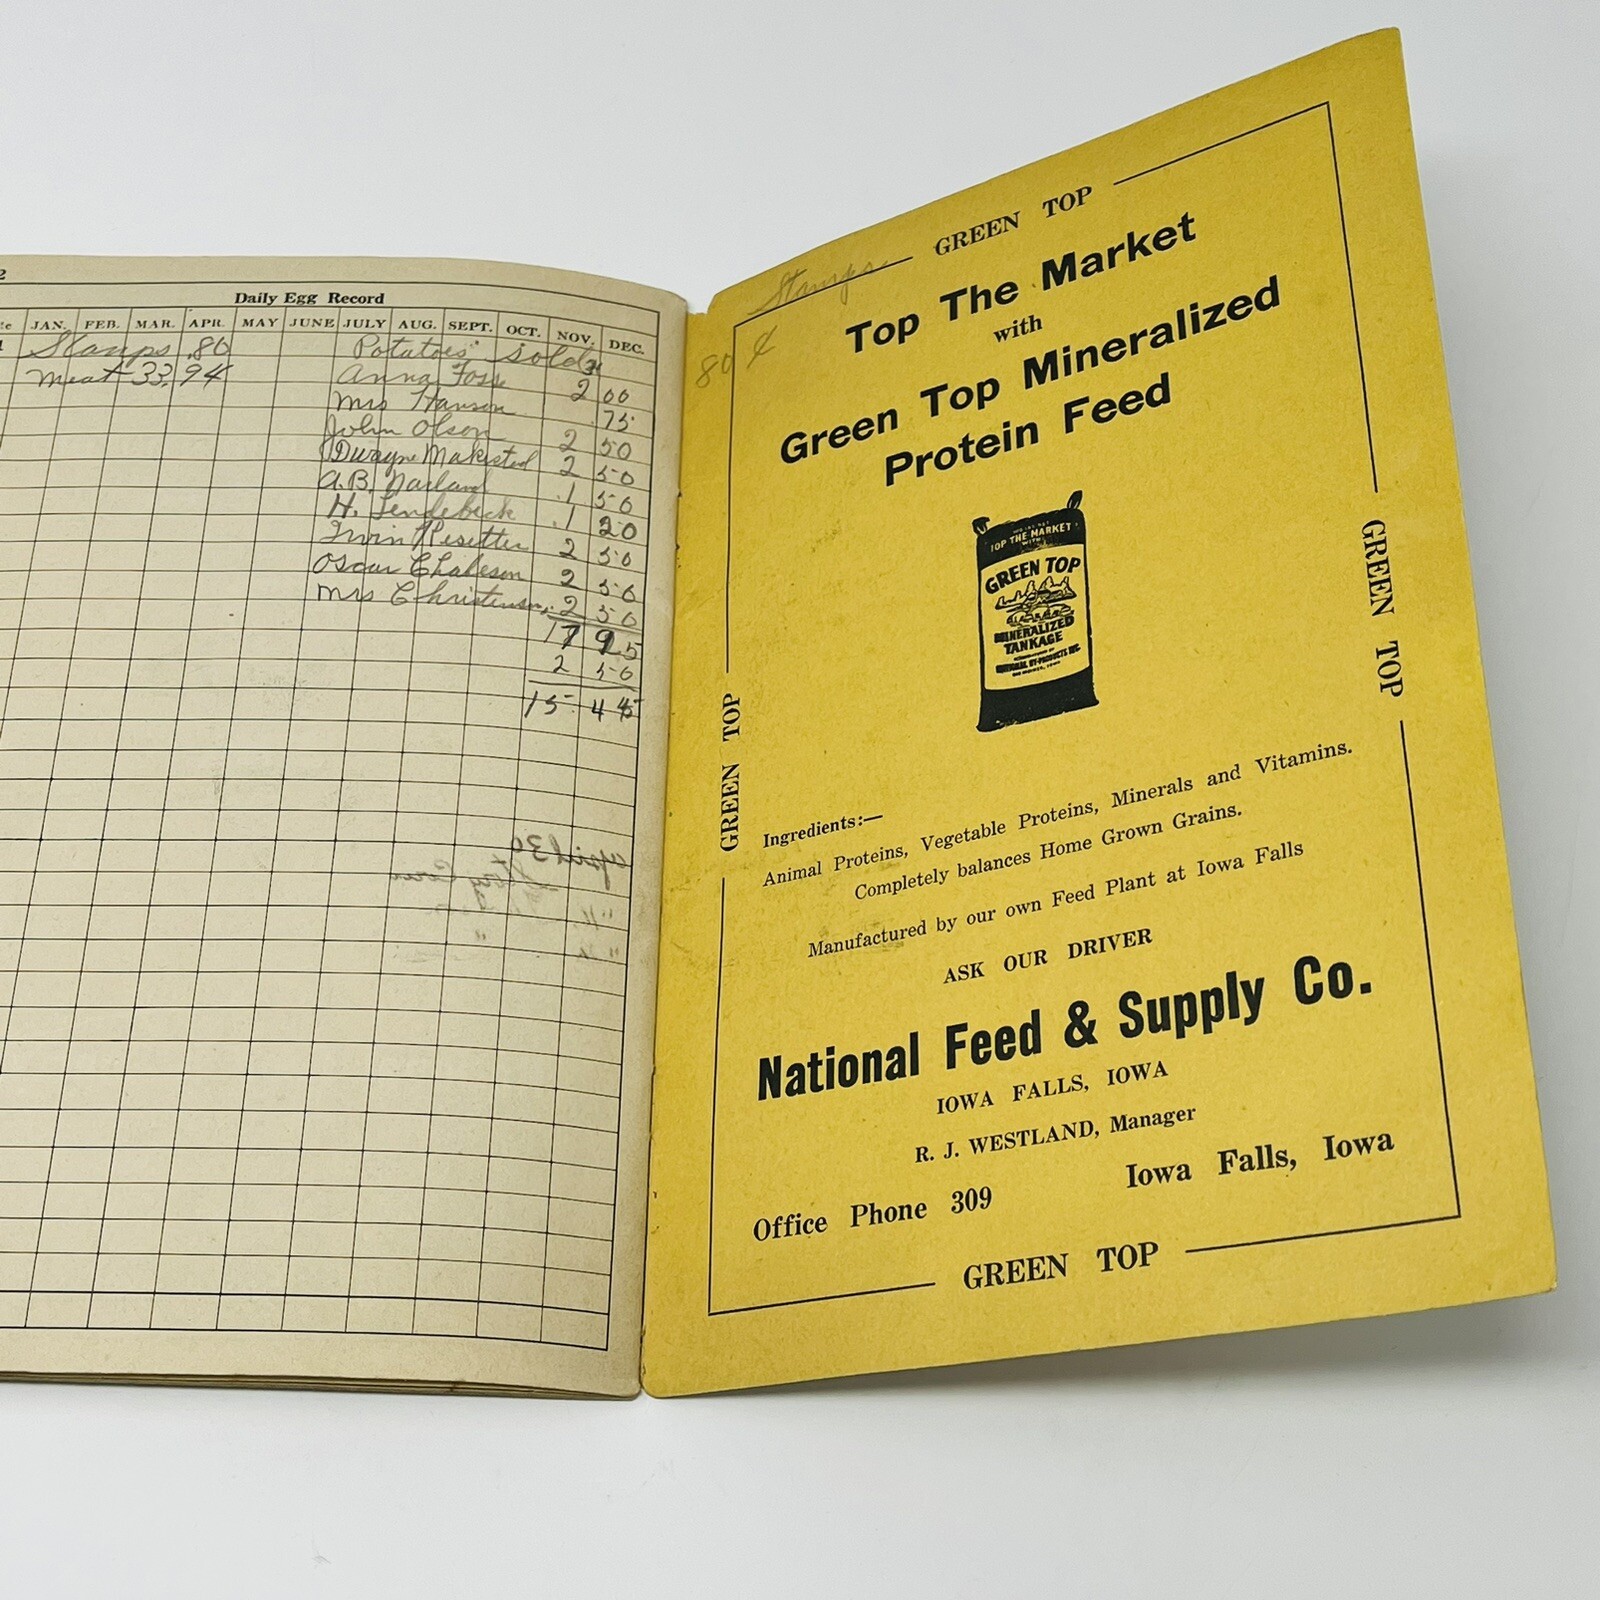 2
Daily Egg Record
JAN. FEB. MAR. APR. MAY JUNE JULY AUG. SEPT. OCT. NOV. DEC.
Stamps .80 Potatoes sold
meat 33.94 Anna Foss 2 00
Mrs Hanson .75
John Olson 2 50
Dwayne 2 50
A.B. 1 50
H. Lendebeck 1 20
Irvin Risetter 2 50
Oscar 2 50
Mrs Christenson 2 50
17 95
2 50
15 45
April 30
Stamps
80 ¢
GREEN TOP
Top The Market
with
Green Top Mineralized
Protein Feed
TOP THE MARKET
WITH
GREEN TOP
MINERALIZED
TANKAGE
NATIONAL BY-PRODUCTS INC.
GREEN TOP
GREEN TOP
Ingredients:—
Animal Proteins, Vegetable Proteins, Minerals and Vitamins.
Completely balances Home Grown Grains.
Manufactured by our own Feed Plant at Iowa Falls
ASK OUR DRIVER
National Feed & Supply Co.
IOWA FALLS, IOWA
R. J. WESTLAND, Manager
Office Phone 309 Iowa Falls, Iowa
GREEN TOP